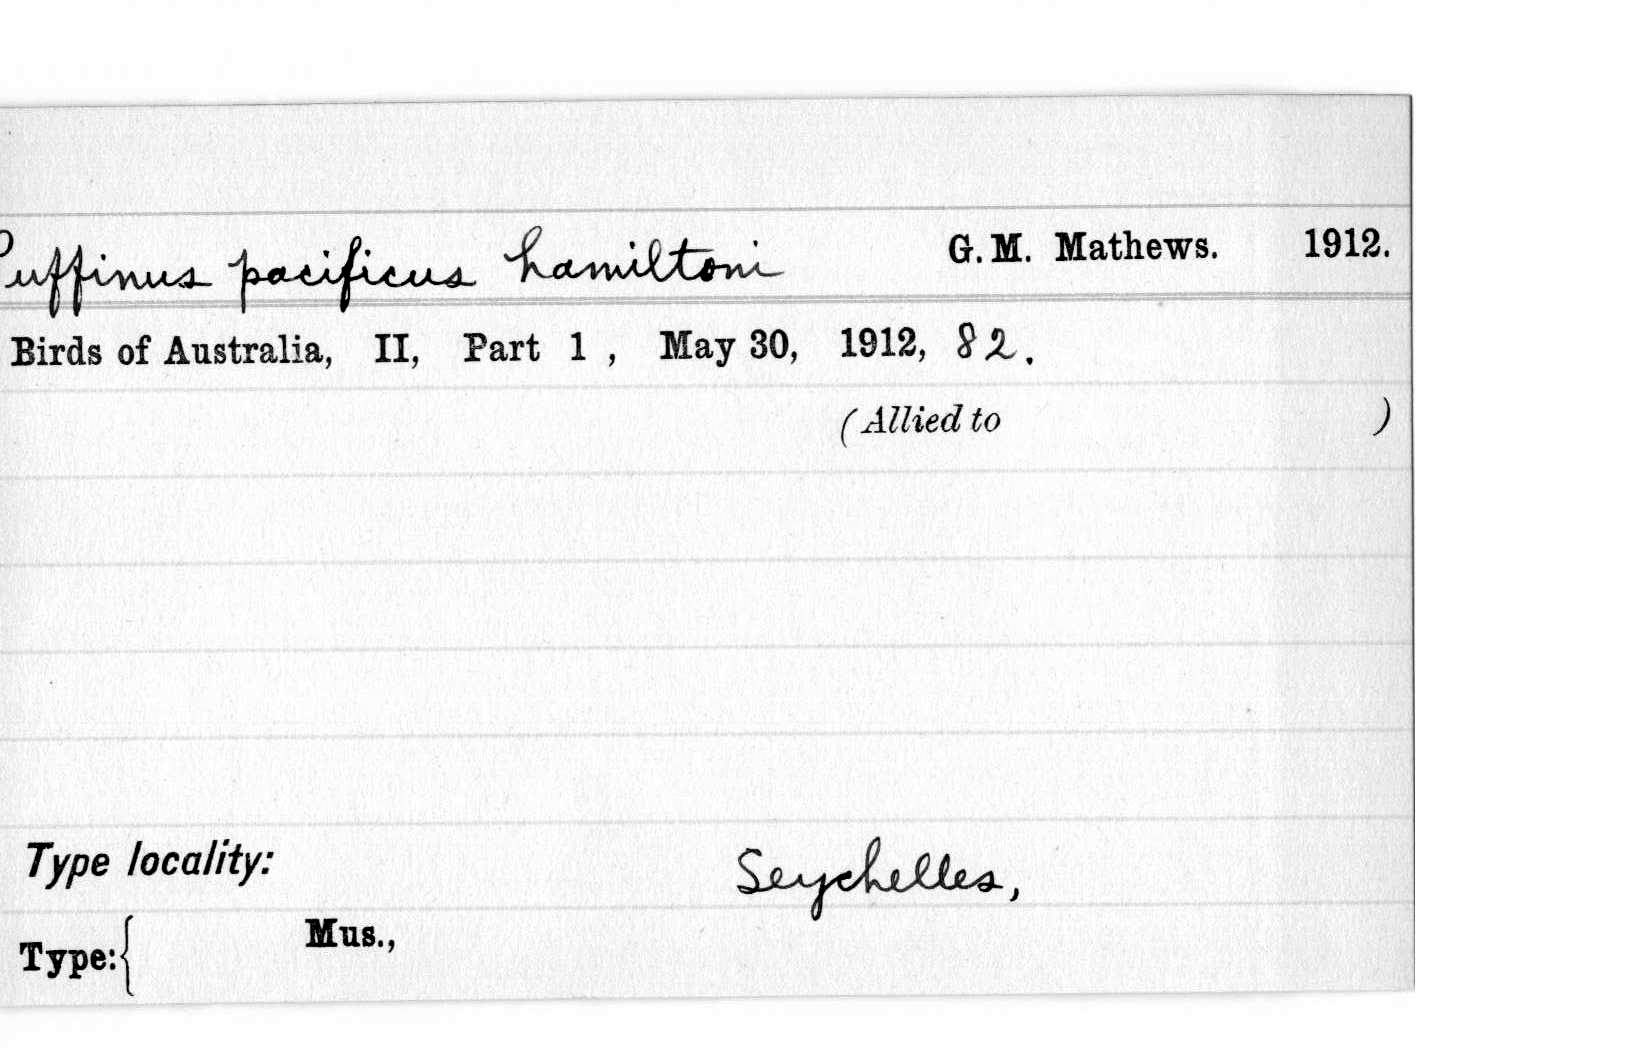 Puffinus pacificus hamiltoni G. M. Mathews. 1912.
Birds of Australia, II, Part 1 , May 30, 1912, 82.
(Allied to )
Type locality: Seychelles,
Type:{ Mus.,